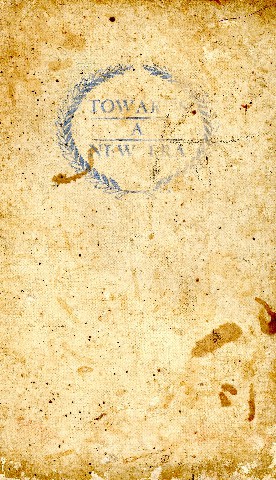 TOWARDS
A
NEW ERA